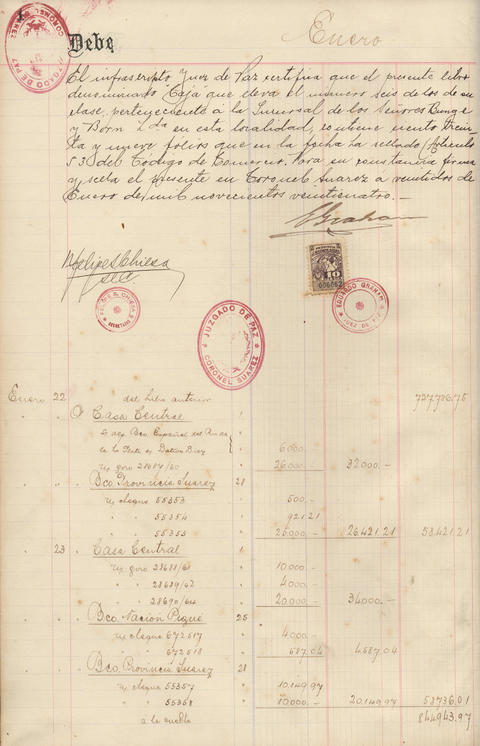 Debe
Enero
El infrascripto Juez de Paz certifica que el presente libro
denominado Caja que lleva el número seis de los de su
clase, perteneciente a la Sucursal de los Señores Bunge
y Born Lda en esta localidad, contiene ciento trein-
ta y nueve folios que en la fecha ha sellado, Artículo
53 del Código de Comercio. Para su constancia firma
y sella el presente en Coronel Suarez a veintidos de
Enero de mil novecientos veinticuatro.-
Graham
Felipe S. Chiesa
Sec
10
FELIPE S. CHIESA
SECRETARIO
EDUARDO GRAHAM
JUEZ DE PAZ
JUZGADO DE PAZ
CORONEL SUAREZ
JUZGADO DE PAZ
CORONEL SUAREZ
Enero 22 del Libro anterior 727.786.76
" " Casa Central
Bco Español del
de la Plata 6000.-
n/ giro 28687/60 26.000.- 32000.-
Bco Provincia Suarez 21
n/ cheque 55353 500.-
" " 55354 921.21
" " 55355 25.000.- 26.421.21 58.421.21
" 23 Casa Central
n/ giro 28688/61 10.000.-
" " 28689/62 4000.-
" " 28690/64 20.000.- 34000.-
" " Bco. Nación Pigüé 25
n/ cheque 672517 4.000.-
" " 672518 587.04 4587.04
" " Bco. Provincia Suarez 21
n/ cheque 55357 10.149.97
" " 55358 10.000.- 20.149.97 58736.01
a la vuelta 844943.97